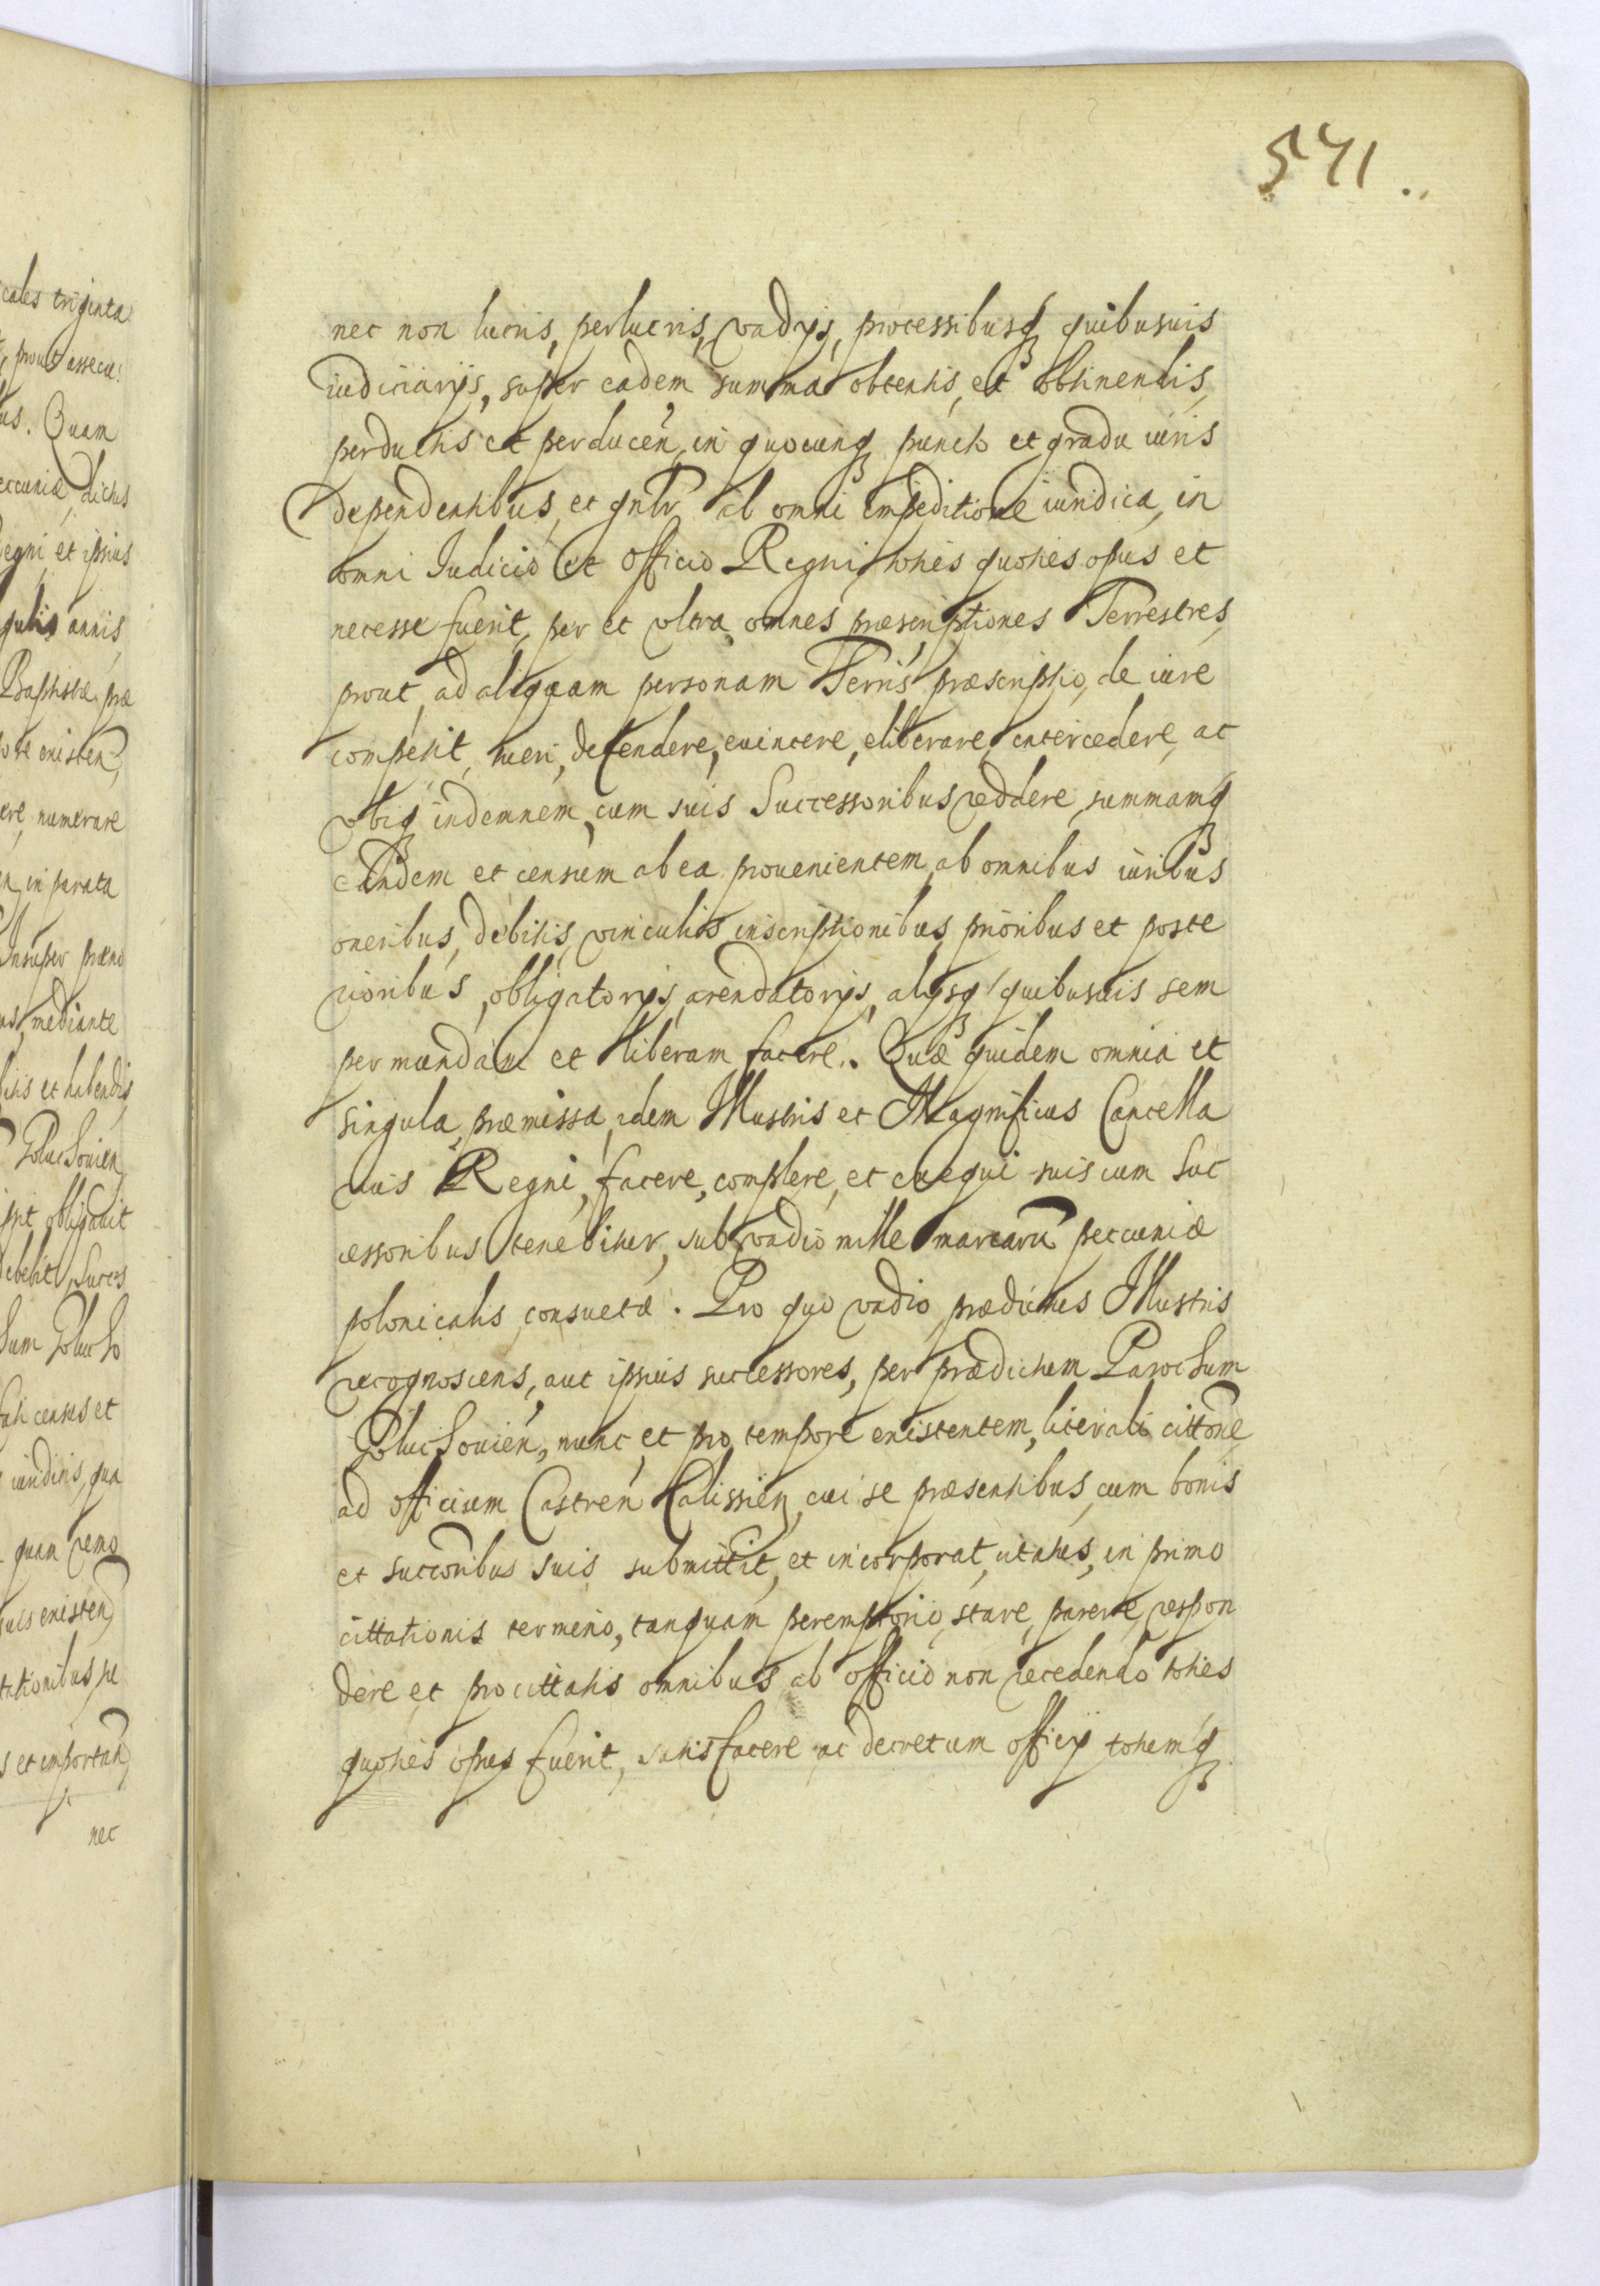 cales triginta
prout assecu:
us. Quam
eccuniæ, dictus
Regni, et ipsius
gulis annis,
Baptistæ præ
existen,
ere, numerare
in parata
Insuper præno
us, mediante
bitis et habendis
Goluchouien,
obligauit
debebit, Succes
sum Golucho
censes et
iuridicis, qua
quam remo
suis existen,
tationibus se
s et importan,
nec
541.
nec non lucris, perlucris, vadijs, processibusq quibusuis
iudiciarijs, super eadem summa obtentis, et obtinendis,
perductis et perducen, in quocunq puncto et gradu iuris
dependentibus, et gnlr ab omni impeditione iuridica, in
omni Iudicio et Officio Regni, toties quoties opus et
necesse fuerit, per et vltra omnes præscriptiones Terrestres,
prout ad aliquam personam Terris præscriptio, de iure
competit, tueri, defendere, euincere, eliberare, intercedere, ac
vbiq indemnem, cum suis Successoribus reddere, summamq
eandem et censum ab ea prouenientem, ab omnibus iuribus
oneribus, debitis, vinculis, inscriptionibus, prioribus et poste
rioribus, obligatorijs, arendatorijs, alijsq quibusuis sem
per mundam et liberam facere. Quæ quidem omnia et
singula præmissa, idem Illustris et Magnificus Cancella
rius Regni, facere, complere, et exequi suis cum Suc
cessoribus tenebitur, sub vadio mille marcarũ peccuniæ
polonicalis, consuetæ. Pro quo vadio, prædictus Illustris
recognoscens, aut ipsius successores, per prædictum Parochum
Goluchouien, nunc et pro tempore existentem, literali cittone
ad officium Castren Calissien, cui se præsentibus, cum bonis
et succoribus suis submittit, et incorporat, citatus, in primo
cittationis termino, tanquam peremptorio, stare, parere, respon
dere et pro cittatis omnibus ab officio non recedendo toties
quoties opus fuerit, satisfacere ac decretum officij totiemq